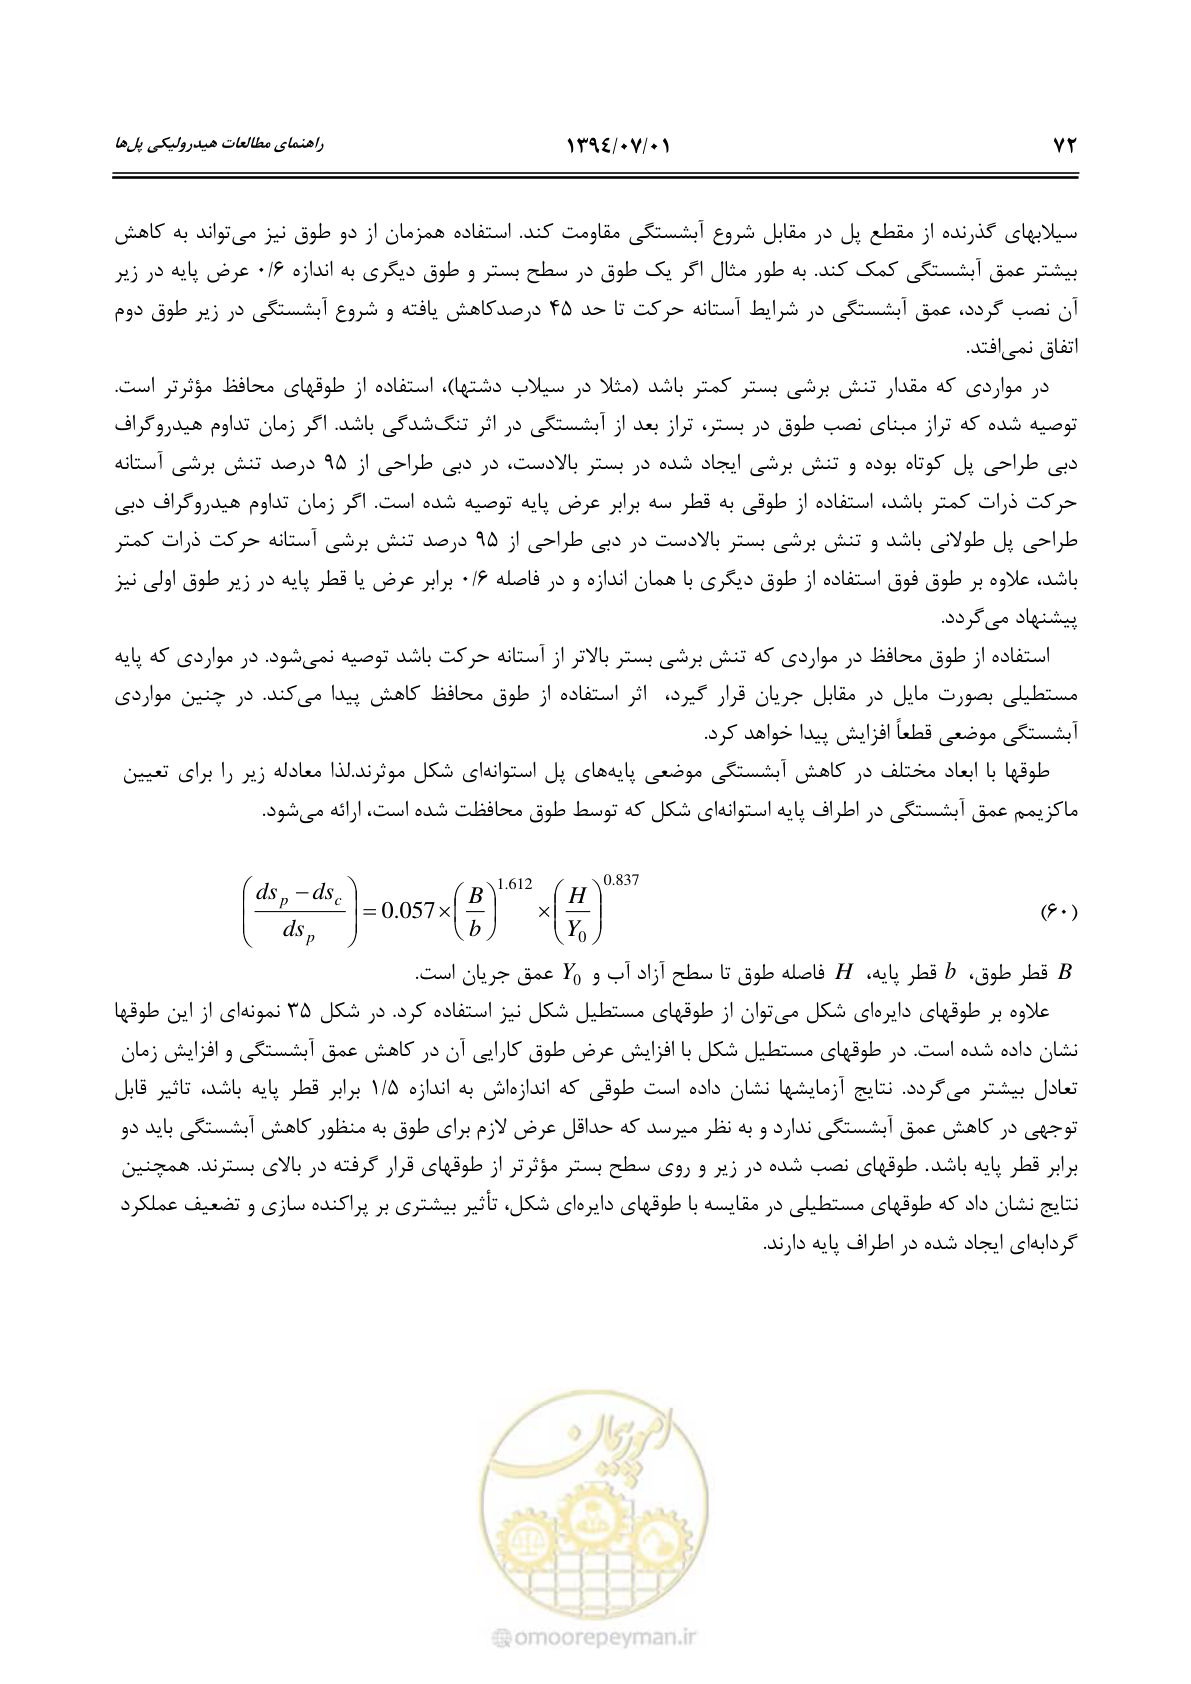 ۷۲ ۱۳۹٤/۰۷/۰۱ راهنمای مطالعات هیدرولیکی پل‌ها
سیلابهای گذرنده از مقطع پل در مقابل شروع آبشستگی مقاومت کند. استفاده همزمان از دو طوق نیز می‌تواند به کاهش
بیشتر عمق آبشستگی کمک کند. به طور مثال اگر یک طوق در سطح بستر و طوق دیگری به اندازه ۰/۶ عرض پایه در زیر
آن نصب گردد، عمق آبشستگی در شرایط آستانه حرکت تا حد ۴۵ درصدکاهش یافته و شروع آبشستگی در زیر طوق دوم
اتفاق نمی‌افتد.
در مواردی که مقدار تنش برشی بستر کمتر باشد (مثلا در سیلاب دشتها)، استفاده از طوقهای محافظ مؤثرتر است.
توصیه شده که تراز مبنای نصب طوق در بستر، تراز بعد از آبشستگی در اثر تنگ‌شدگی باشد. اگر زمان تداوم هیدروگراف
دبی طراحی پل کوتاه بوده و تنش برشی ایجاد شده در بستر بالادست، در دبی طراحی از ۹۵ درصد تنش برشی آستانه
حرکت ذرات کمتر باشد، استفاده از طوقی به قطر سه برابر عرض پایه توصیه شده است. اگر زمان تداوم هیدروگراف دبی
طراحی پل طولانی باشد و تنش برشی بستر بالادست در دبی طراحی از ۹۵ درصد تنش برشی آستانه حرکت ذرات کمتر
باشد، علاوه بر طوق فوق استفاده از طوق دیگری با همان اندازه و در فاصله ۰/۶ برابر عرض یا قطر پایه در زیر طوق اولی نیز
پیشنهاد می‌گردد.
استفاده از طوق محافظ در مواردی که تنش برشی بستر بالاتر از آستانه حرکت باشد توصیه نمی‌شود. در مواردی که پایه
مستطیلی بصورت مایل در مقابل جریان قرار گیرد، اثر استفاده از طوق محافظ کاهش پیدا می‌کند. در چنین مواردی
آبشستگی موضعی قطعاً افزایش پیدا خواهد کرد.
طوقها با ابعاد مختلف در کاهش آبشستگی موضعی پایه‌های پل استوانه‌ای شکل موثرند.لذا معادله زیر را برای تعیین
ماکزیمم عمق آبشستگی در اطراف پایه استوانه‌ای شکل که توسط طوق محافظت شده است، ارائه می‌شود.
(۶۰) $\left(\frac{ds_p - ds_c}{ds_p}\right) = 0.057 \times \left(\frac{B}{b}\right)^{1.612} \times \left(\frac{H}{Y_0}\right)^{0.837}$
B قطر طوق، b قطر پایه، H فاصله طوق تا سطح آزاد آب و Y₀ عمق جریان است.
علاوه بر طوقهای دایره‌ای شکل می‌توان از طوقهای مستطیل شکل نیز استفاده کرد. در شکل ۳۵ نمونه‌ای از این طوقها
نشان داده شده است. در طوقهای مستطیل شکل با افزایش عرض طوق کارایی آن در کاهش عمق آبشستگی و افزایش زمان
تعادل بیشتر می‌گردد. نتایج آزمایشها نشان داده است طوقی که اندازه‌اش به اندازه ۱/۵ برابر قطر پایه باشد، تاثیر قابل
توجهی در کاهش عمق آبشستگی ندارد و به نظر میرسد که حداقل عرض لازم برای طوق به منظور کاهش آبشستگی باید دو
برابر قطر پایه باشد. طوقهای نصب شده در زیر و روی سطح بستر مؤثرتر از طوقهای قرار گرفته در بالای بسترند. همچنین
نتایج نشان داد که طوقهای مستطیلی در مقایسه با طوقهای دایره‌ای شکل، تأثیر بیشتری بر پراکنده سازی و تضعیف عملکرد
گردابه‌ای ایجاد شده در اطراف پایه دارند.
امور پیمان
omoorepeyman.ir